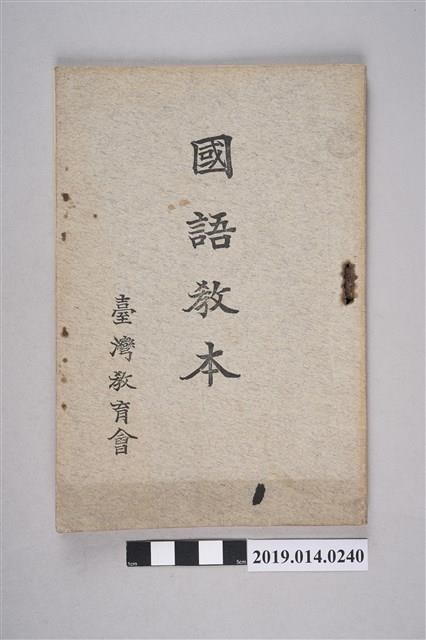 國語教本
臺灣教育會
1cm
5cm
2019.014.0240